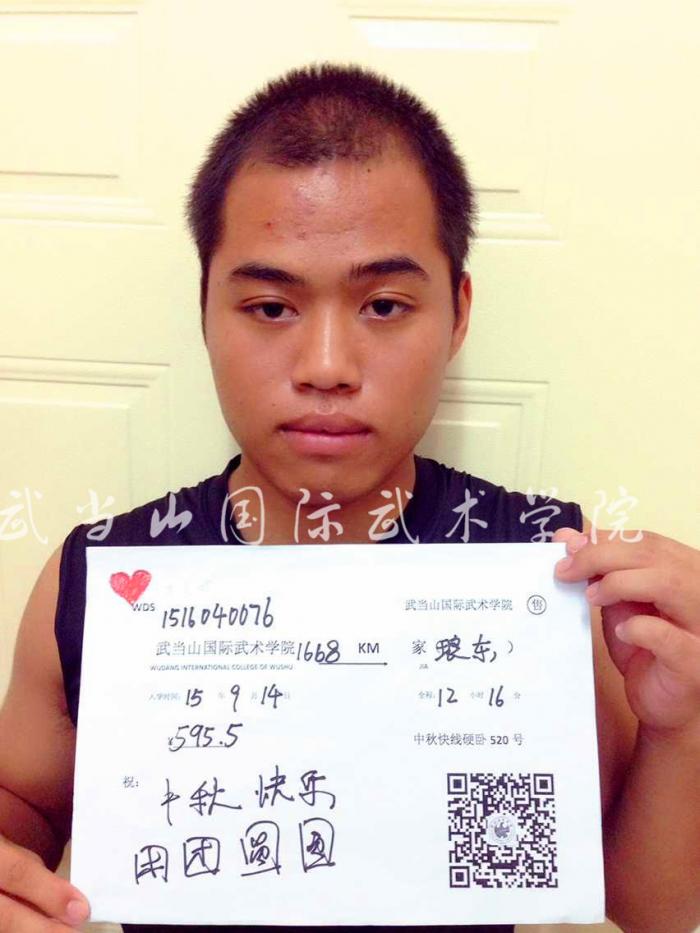 武当山国际武术学院
WDS 1516040076 武当山国际武术学院 售
武当山国际武术学院 1668 KM 家 东,)
WUDANG INTERNATIONAL COLLEGE OF WUSHU JIA
入学时间: 15 年 9 月 14 日 全程: 12 小时 16 分
¥595.5 中秋快线硬卧 520 号
祝: 中秋快乐
团团圆圆